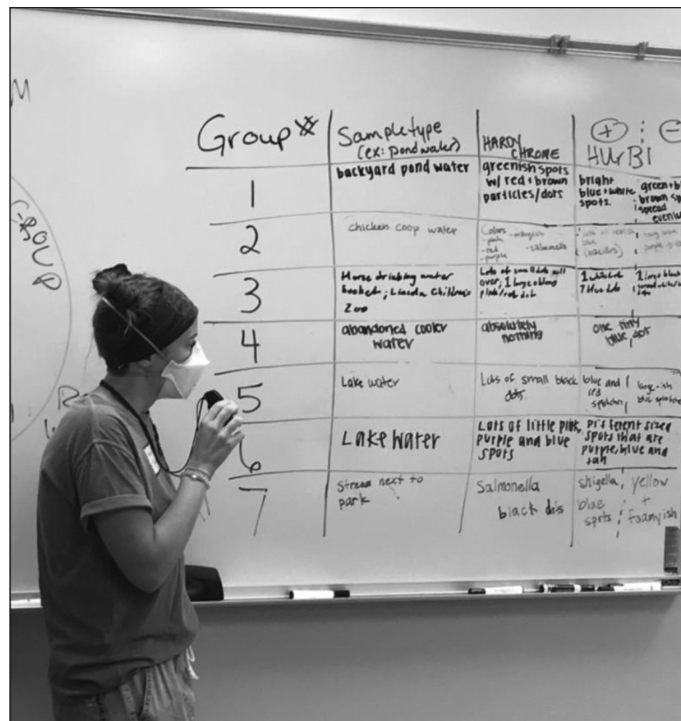 M
GROUP
Group #
Sample type
(ex: pond water)
HARDY
CHROME
+ -
HUrBI
1
backyard pond water
greenish spots
w/ red + brown
particles/dots
bright
blue + white
spots.
green + b
brown sp
spread
evenly
2
chicken coop water
Colors
- pink
- red
- purple
- salmonella
3
Horse drinking water
bucket; Linda Children's
Zoo
Lots of small dots all
over; 1 large
dot
1 white dot
7 blue dots
1 large black
4
abandoned cooler
water
absolutely
nothing
one tiny
blue dot
5
Lake water
Lots of small black
dots.
blue and
red
splotches
large-ish
blue
6
Lake Water
Lots of little pink,
purple and blue
spots
Different sized
spots that are
purple, blue and
tan
7
Stream next to
park
Salmonella
black dots
shigella,
blue
spots
yellow
+
foamyish